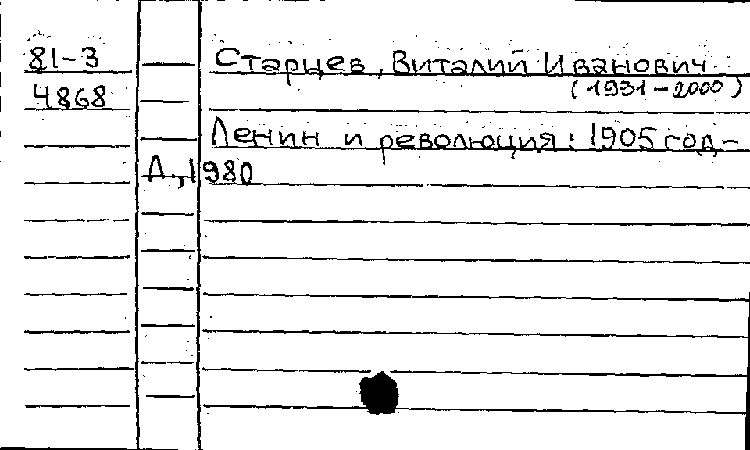 81-3 Старцев, Виталий Иванович
4868 (1931-2000)
Ленин и революция: 1905 год-
Л., 1980